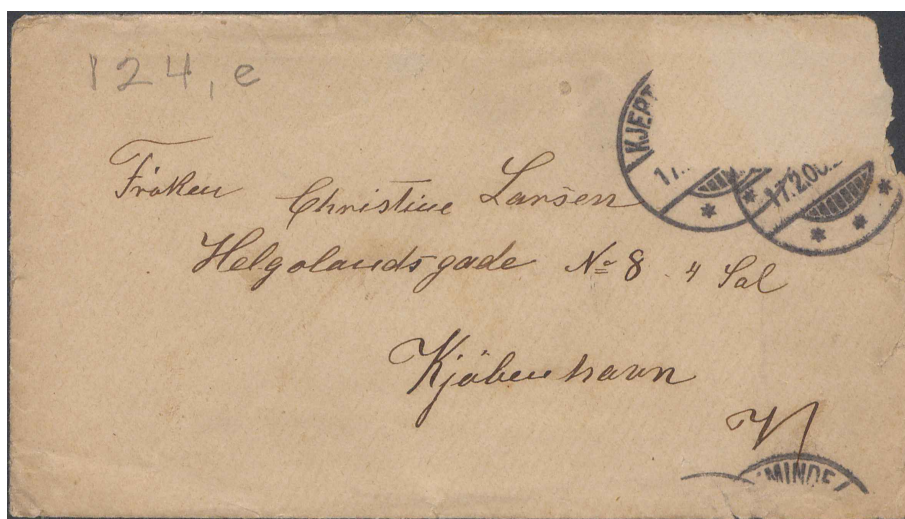 124, e
KJERT
17.
17.2.00.
Frøken Christine Larsen
Helgolandsgade No 8 4 Sal
Kjøbenhavn
V
MINDE